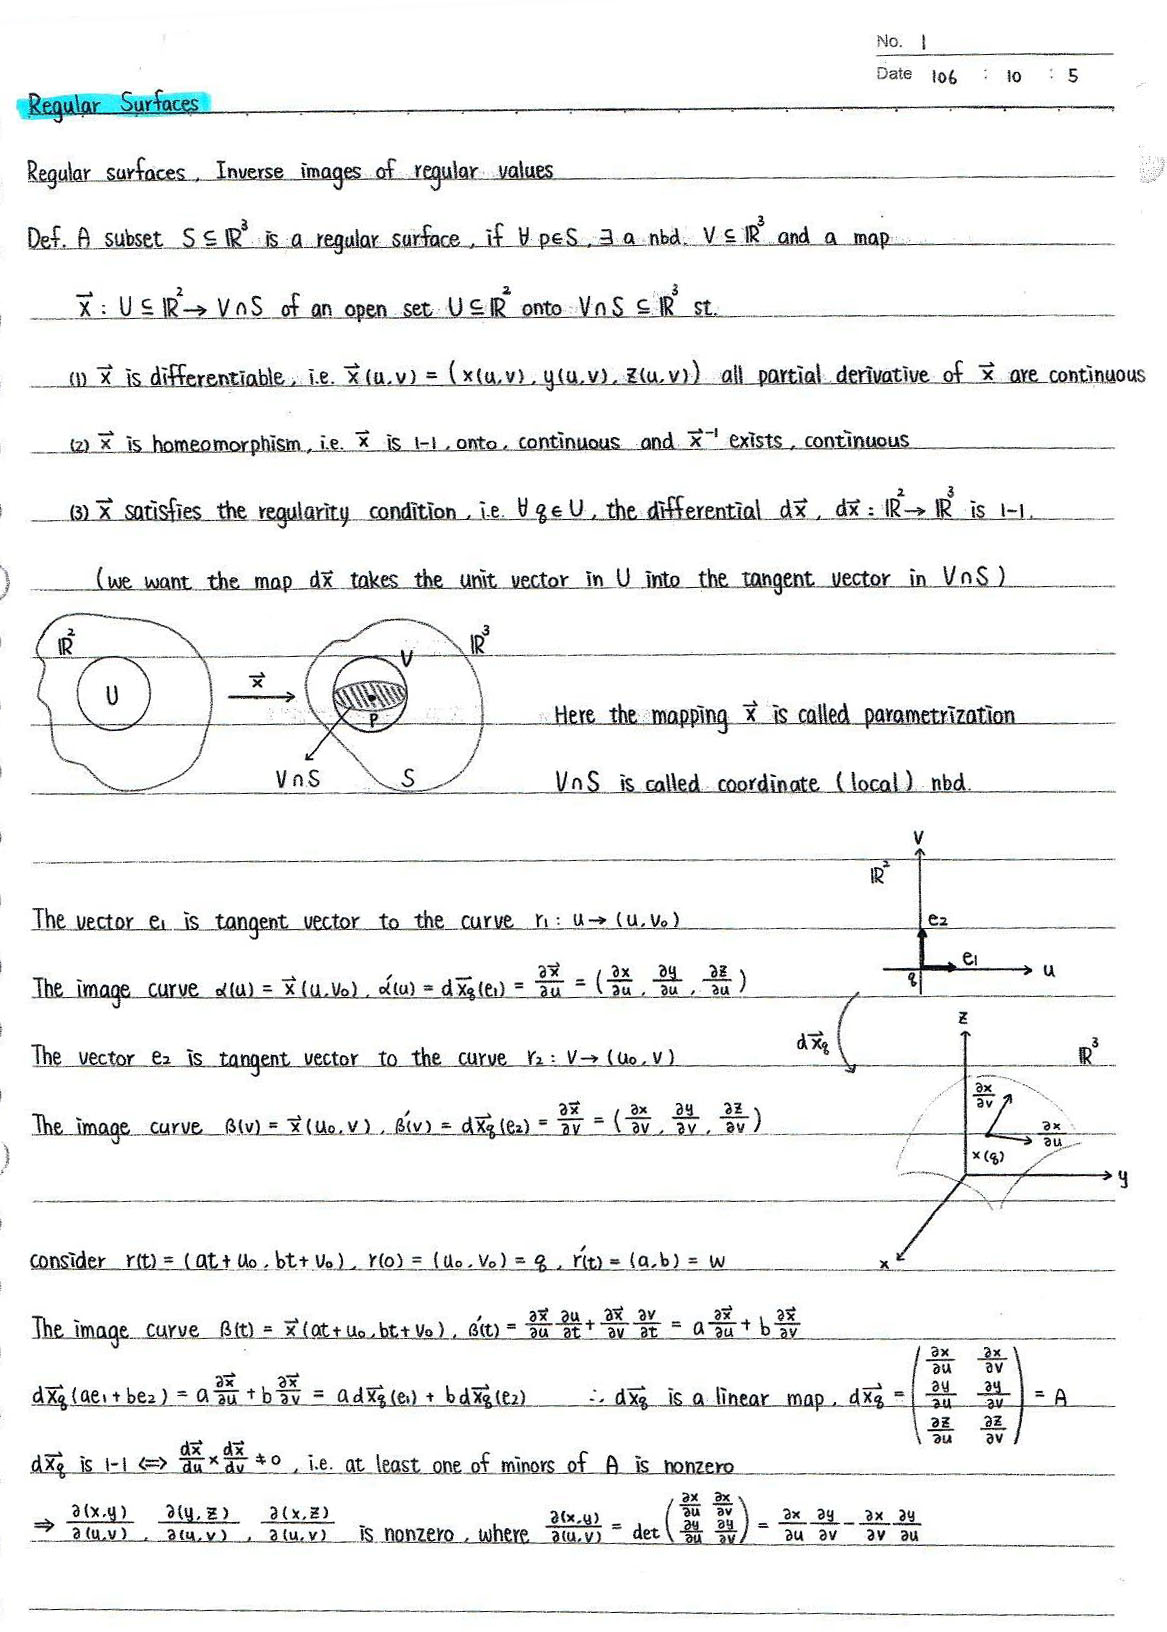 No. 1
Date 106 : 10 : 5
Regular Surfaces
Regular surfaces, Inverse images of regular values
Def. A subset S ⊆ ℝ³ is a regular surface, if ∀ p∈S, ∃ a nbd. V ⊆ ℝ³ and a map
x⃗ : U ⊆ ℝ² → V∩S of an open set U ⊆ ℝ² onto V∩S ⊆ ℝ³ st.
(1) x⃗ is differentiable, i.e. x⃗(u,v) = (x(u,v), y(u,v), z(u,v)) all partial derivative of x⃗ are continuous
(2) x⃗ is homeomorphism, i.e. x⃗ is 1-1, onto, continuous and x⃗⁻¹ exists, continuous
(3) x⃗ satisfies the regularity condition, i.e. ∀ q∈U, the differential dx⃗, dx⃗ : ℝ² → ℝ³ is 1-1.
(we want the map dx⃗ takes the unit vector in U into the tangent vector in V∩S)
ℝ²
U
x⃗
V
ℝ³
P
V∩S
S
Here the mapping x⃗ is called parametrization
V∩S is called coordinate (local) nbd.
V
ℝ²
e₂
e₁
u
q
The vector e₁ is tangent vector to the curve r₁ : u → (u, v₀)
The image curve α(u) = x⃗(u, v₀), α′(u) = dx⃗q(e₁) = ∂x⃗/∂u = (∂x/∂u, ∂y/∂u, ∂z/∂u)
The vector e₂ is tangent vector to the curve r₂ : v → (u₀, v)
The image curve β(v) = x⃗(u₀, v), β′(v) = dx⃗q(e₂) = ∂x⃗/∂v = (∂x/∂v, ∂y/∂v, ∂z/∂v)
dx⃗q
z
ℝ³
∂x/∂v
∂x/∂u
x(q)
y
x
consider r(t) = (at+u₀, bt+v₀), r(0) = (u₀, v₀) = q, r′(t) = (a,b) = w
The image curve β(t) = x⃗(at+u₀, bt+v₀), β′(t) = ∂x⃗/∂u ∂u/∂t + ∂x⃗/∂v ∂v/∂t = a ∂x⃗/∂u + b ∂x⃗/∂v
dx⃗q(ae₁+be₂) = a ∂x⃗/∂u + b ∂x⃗/∂v = a dx⃗q(e₁) + b dx⃗q(e₂) ∴ dx⃗q is a linear map, dx⃗q = (∂x/∂u ∂x/∂v ; ∂y/∂u ∂y/∂v ; ∂z/∂u ∂z/∂v) = A
dx⃗q is 1-1 ⟺ dx⃗/du × dx⃗/dv ≠ 0, i.e. at least one of minors of A is nonzero
⇒ ∂(x,y)/∂(u,v), ∂(y,z)/∂(u,v), ∂(x,z)/∂(u,v) is nonzero, where ∂(x,y)/∂(u,v) = det (∂x/∂u ∂x/∂v ; ∂y/∂u ∂y/∂v) = ∂x/∂u ∂y/∂v − ∂x/∂v ∂y/∂u